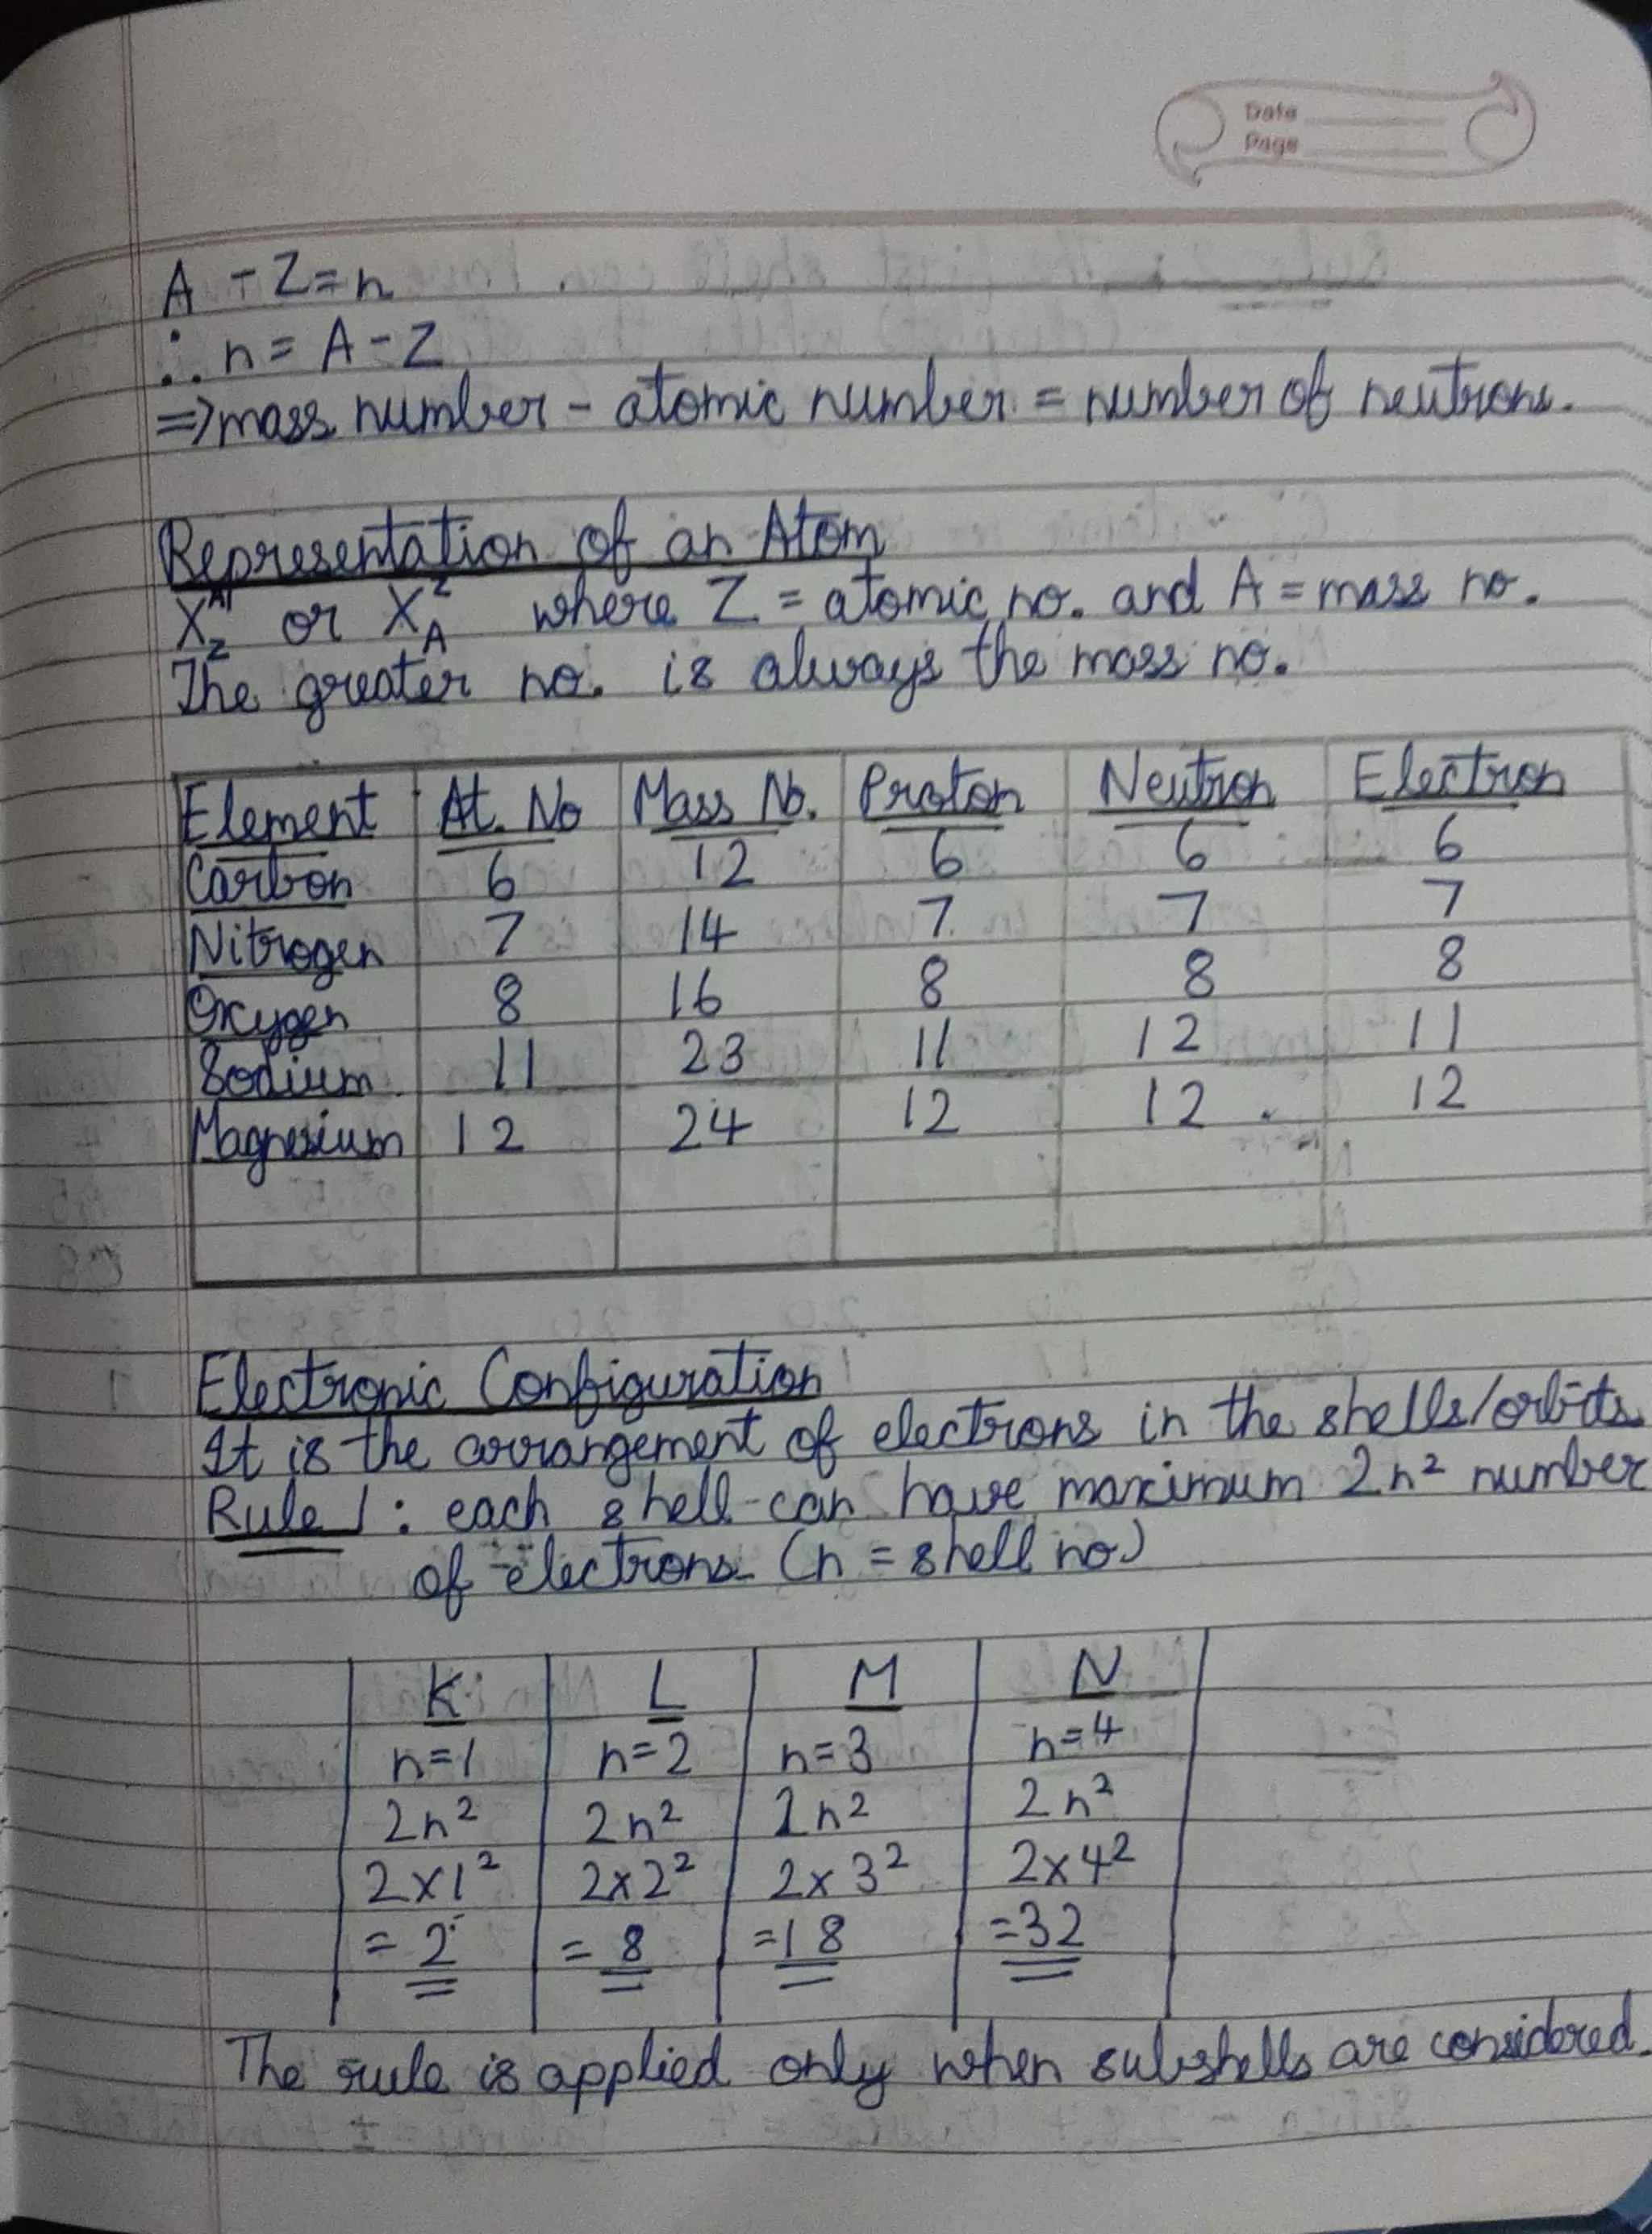 Date
Page
A - Z = n
∴ n = A - Z
⇒ mass number - atomic number = number of neutrons.
Representation of an Atom
X^A_Z or X^Z_A where Z = atomic no. and A = mass no.
The greater no. is always the mass no.
Element At. No Mass No. Proton Neutron Electron
Carbon 6 12 6 6 6
Nitrogen 7 14 7 7 7
Oxygen 8 16 8 8 8
Sodium 11 23 11 12 11
Magnesium 12 24 12 12 12
Electronic Configuration
It is the arrangement of electrons in the shells/orbits.
Rule 1: each shell can have maximum 2n² number
of electrons. (n = shell no.)
K L M N
n=1 n=2 n=3 n=4
2n² 2n² 2n² 2n²
2×1² 2×2² 2×3² 2×4²
= 2 = 8 =18 =32
The rule is applied only when subshells are considered.